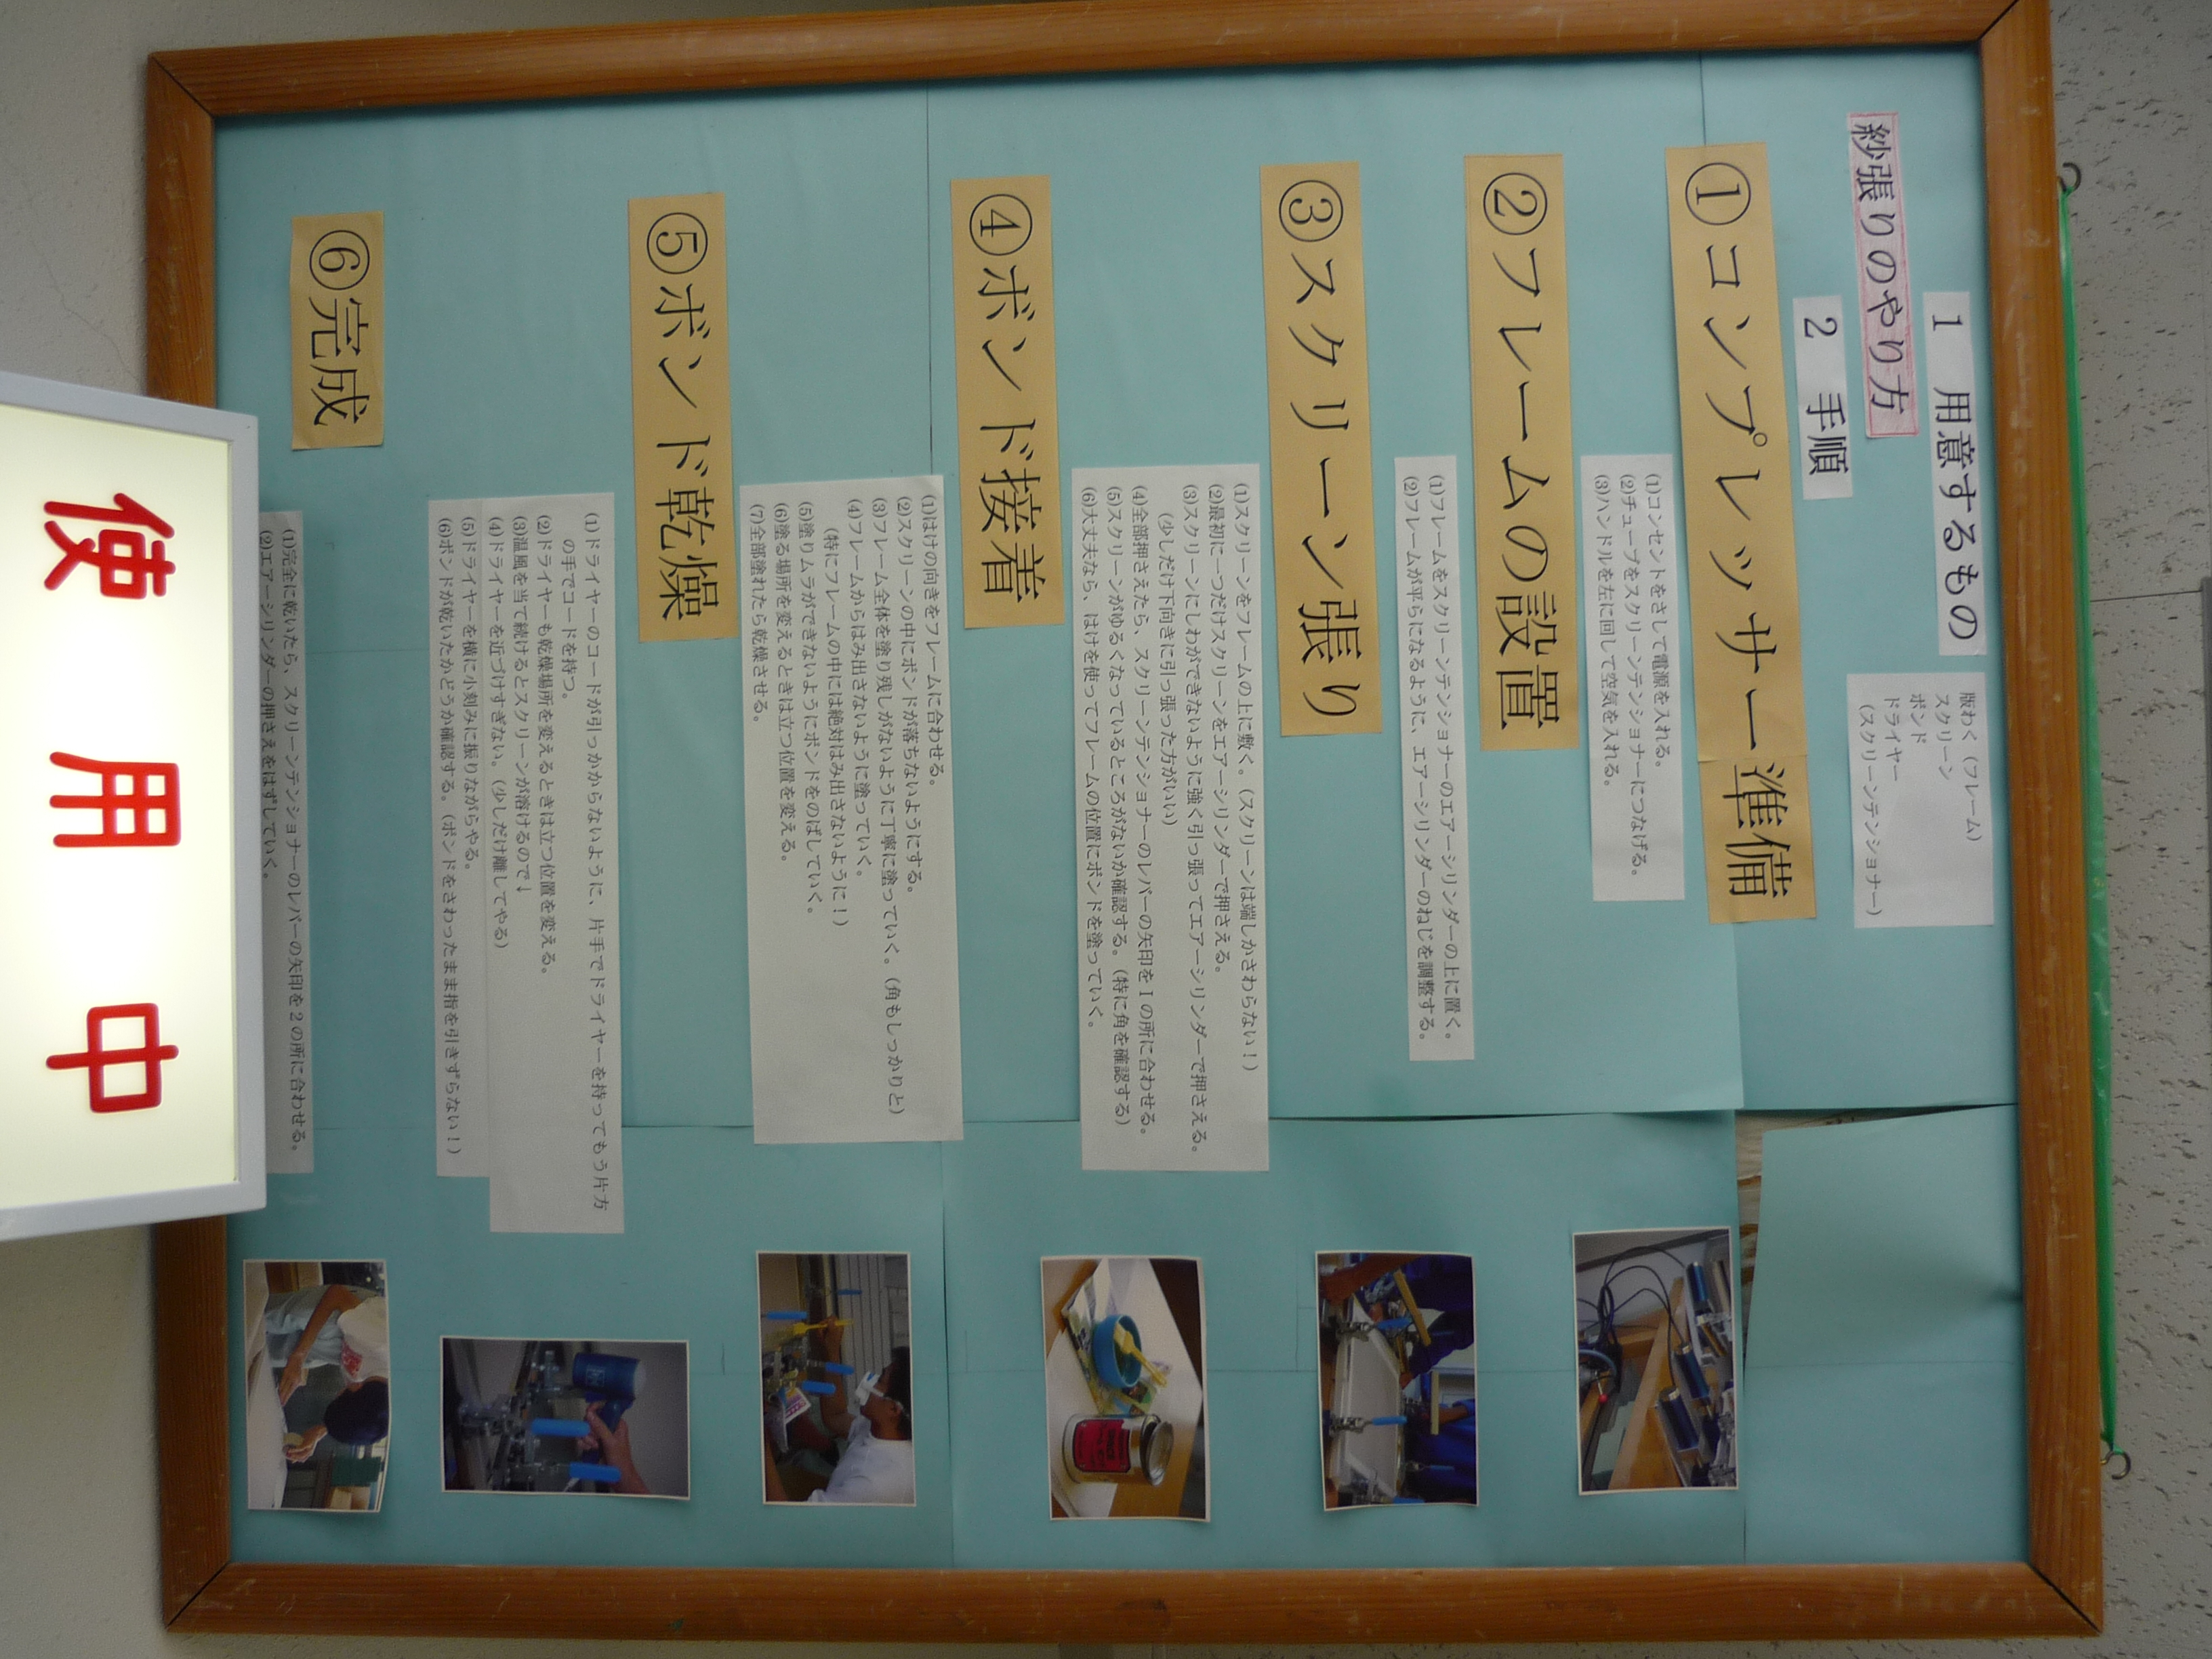 紗張りのやり方
1 用意するもの
版わく（フレーム）
スクリーン
ボンド
ドライヤー
（スクリーンテンショナー）
2 手順
①コンプレッサー準備
(1)コンセントをさして電源を入れる。
(2)チューブをスクリーンテンショナーにつなげる。
(3)ハンドルを左に回して空気を入れる。
②フレームの設置
(1)フレームをスクリーンテンショナーのエアーシリンダーの上に置く。
(2)フレームが平らになるように、エアーシリンダーのねじを調整する。
③スクリーン張り
(1)スクリーンをフレームの上に敷く。（スクリーンは端しかさわらない！）
(2)最初に一つだけスクリーンをエアーシリンダーで押さえる。
(3)スクリーンにしわができないように強く引っ張ってエアーシリンダーで押さえる。
（少しだけ下向きに引っ張った方がいい）
(4)全部押さえたら、スクリーンテンショナーのレバーの矢印を1の所に合わせる。
(5)スクリーンがゆるくなっているところがないか確認する。（特に角を確認する）
(6)大丈夫なら、はけを使ってフレームの位置にボンドを塗っていく。
④ボンド接着
(1)はけの向きをフレームに合わせる。
(2)スクリーンの中にボンドが落ちないようにする。
(3)フレーム全体を塗り残しがないように丁寧に塗っていく。（角もしっかりと）
(4)フレームからはみ出さないように塗っていく。
（特にフレームの中には絶対はみ出さないように！）
(5)塗りムラができないようにボンドをのばしていく。
(6)塗る場所を変えるときは立つ位置を変える。
(7)全部塗れたら乾燥させる。
⑤ボンド乾燥
(1)ドライヤーのコードが引っかからないように、片手でドライヤーを持ってもう片方
の手でコードを持つ。
(2)ドライヤーも乾燥場所を変えるときは立つ位置を変える。
(3)温風を当て続けるとスクリーンが溶けるので↓
(4)ドライヤーを近づけすぎない。（少しだけ離してやる）
(5)ドライヤーを横に小刻みに振りながらやる。
(6)ボンドが乾いたかどうか確認する。（ボンドをさわったまま指を引きずらない！）
⑥完成
(1)完全に乾いたら、スクリーンテンショナーのレバーの矢印を2の所に合わせる。
(2)エアーシリンダーの押さえをはずしていく。
使用中